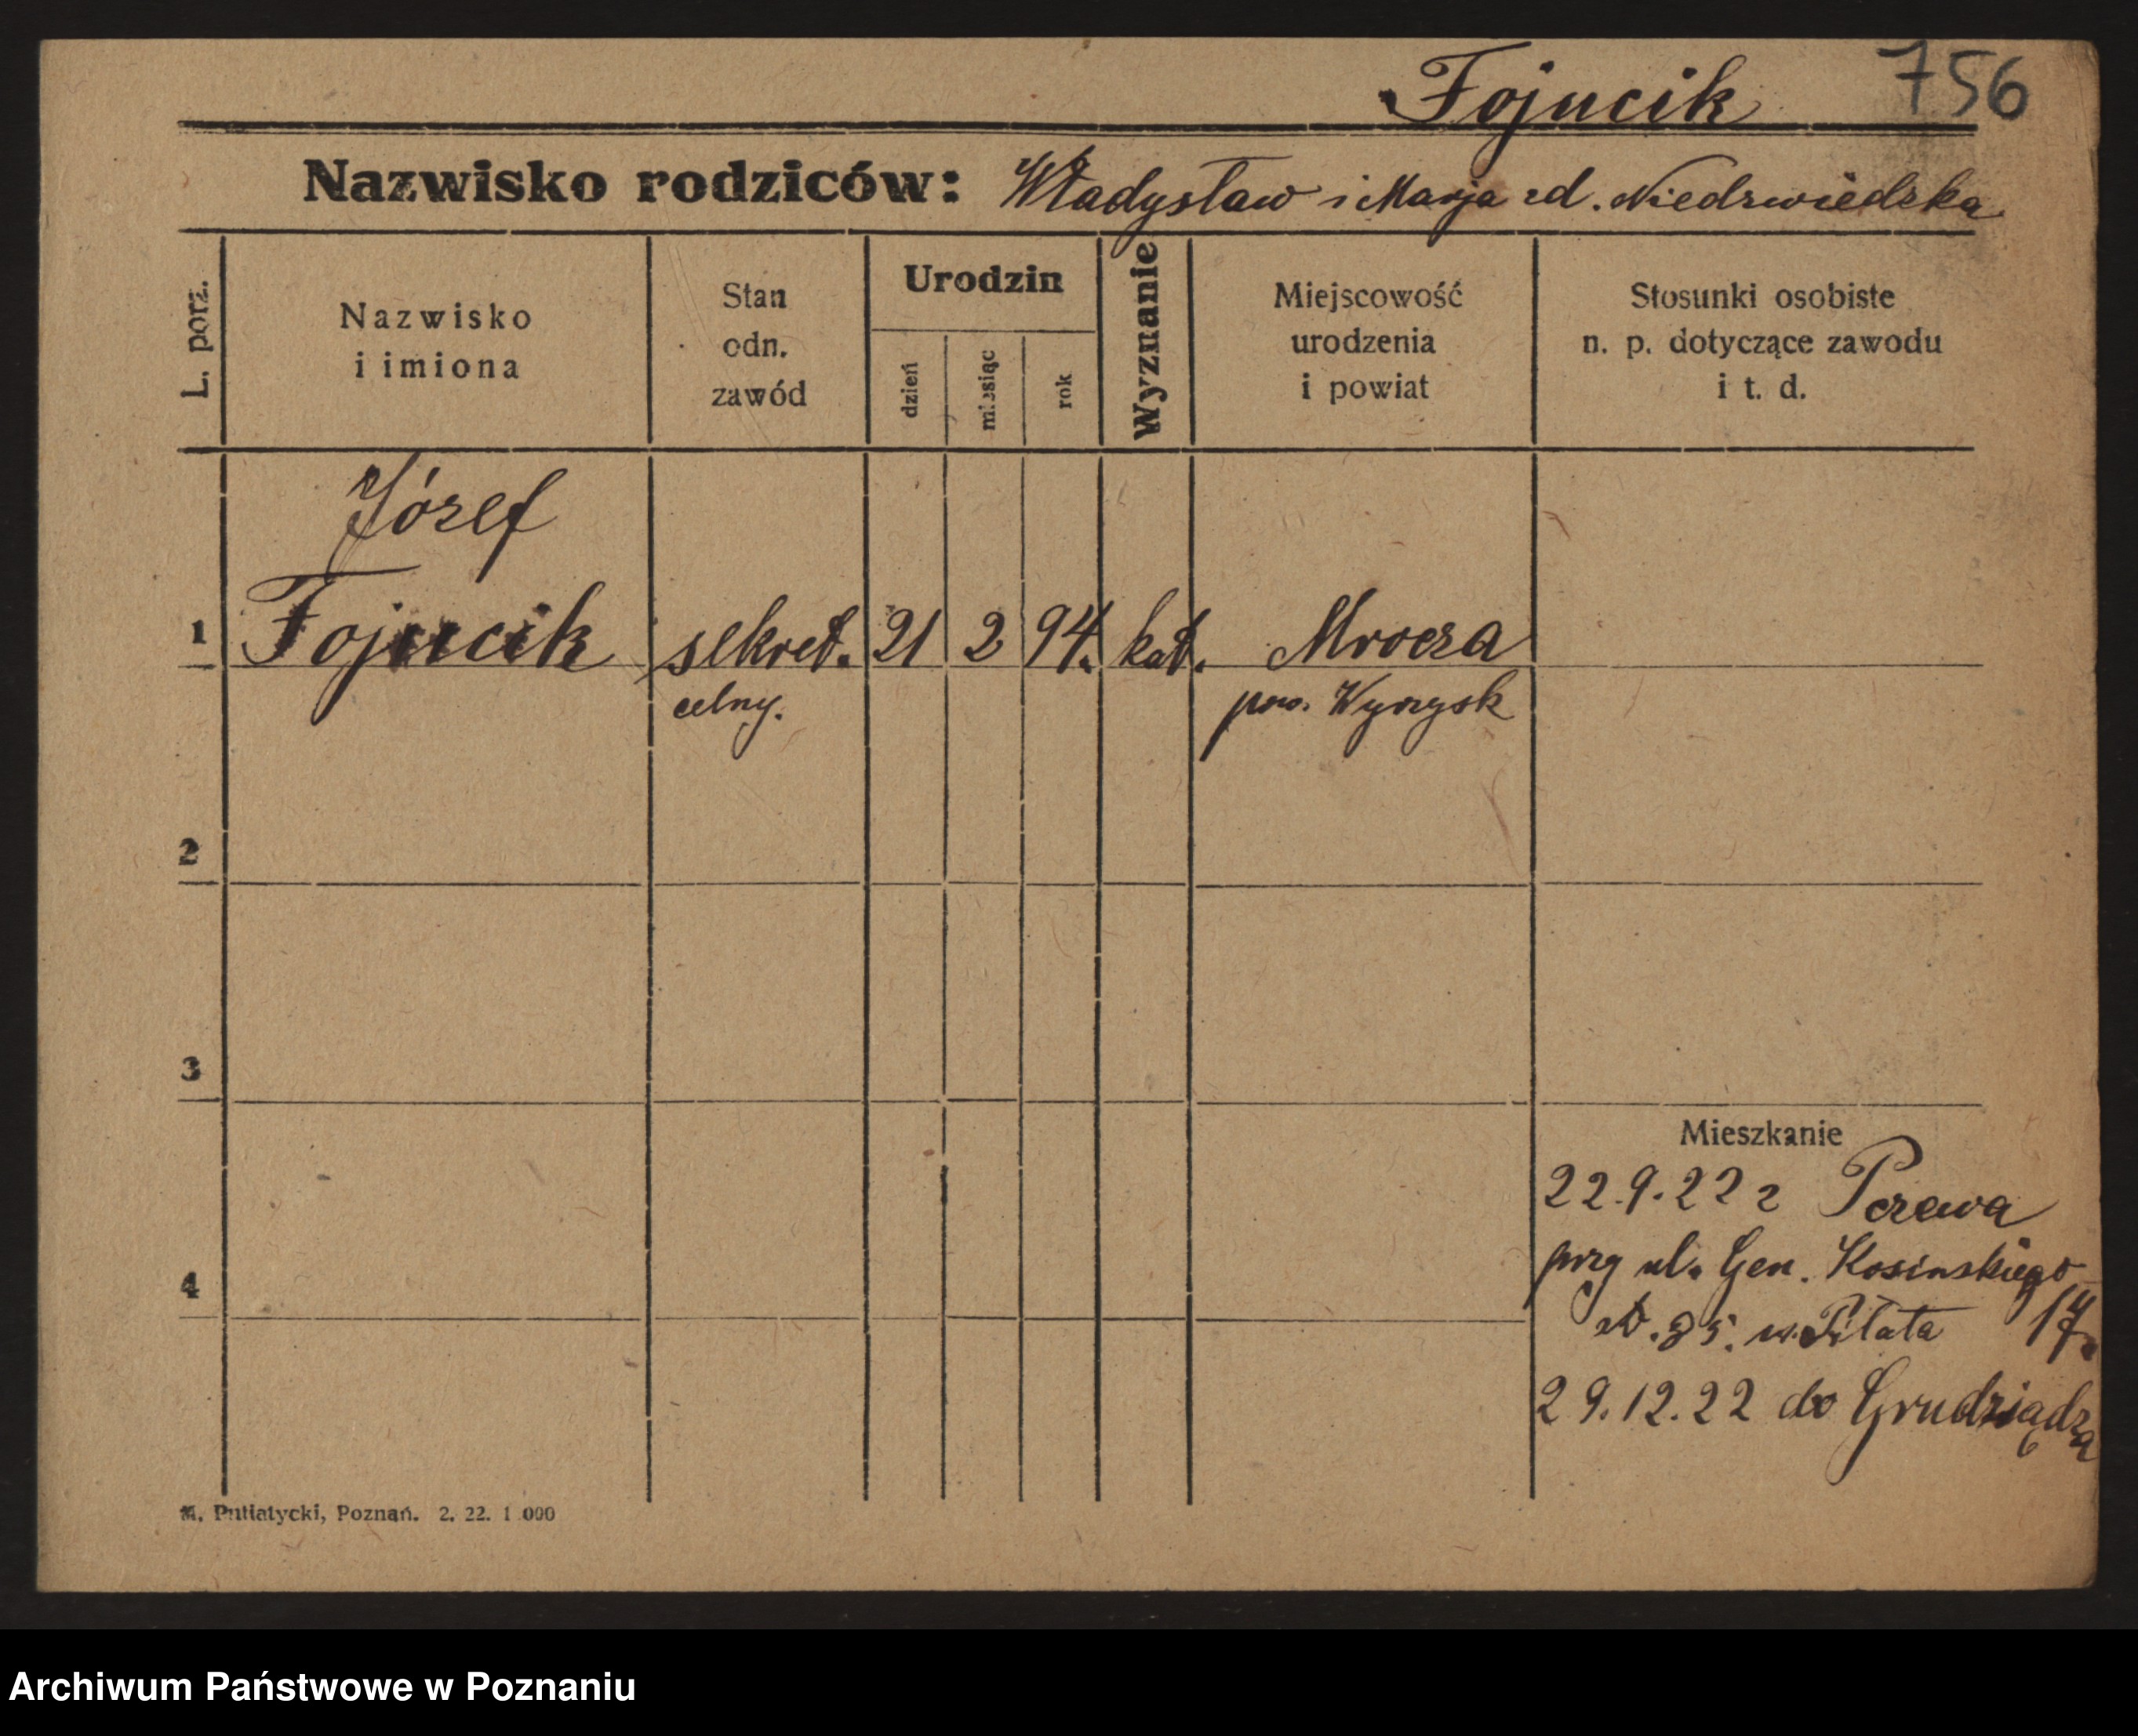 Fojucik 756
Nazwisko rodziców: Władysław i Marja zd. Niedzwiedzka
L. porz.
Nazwisko
i imiona
Stan
odn.
zawód
Urodzin
dzień
miesiąc
rok
Wyznanie
Miejscowość
urodzenia
i powiat
Stosunki osobiste
n. p. dotyczące zawodu
i t. d.
Józef
1 Fojucik sekret. 21 2 94. kat. Mrocza
celny. pow. Wyrzysk
2
3
4
Mieszkanie
22.9.22 z Tczewa
przy ul. Gen. Kosinskiego
17.
85. w. Piłata
29.12.22 do Grudziądza
M. Putiatycki, Poznań. 2. 22. 1 000
Archiwum Państwowe w Poznaniu